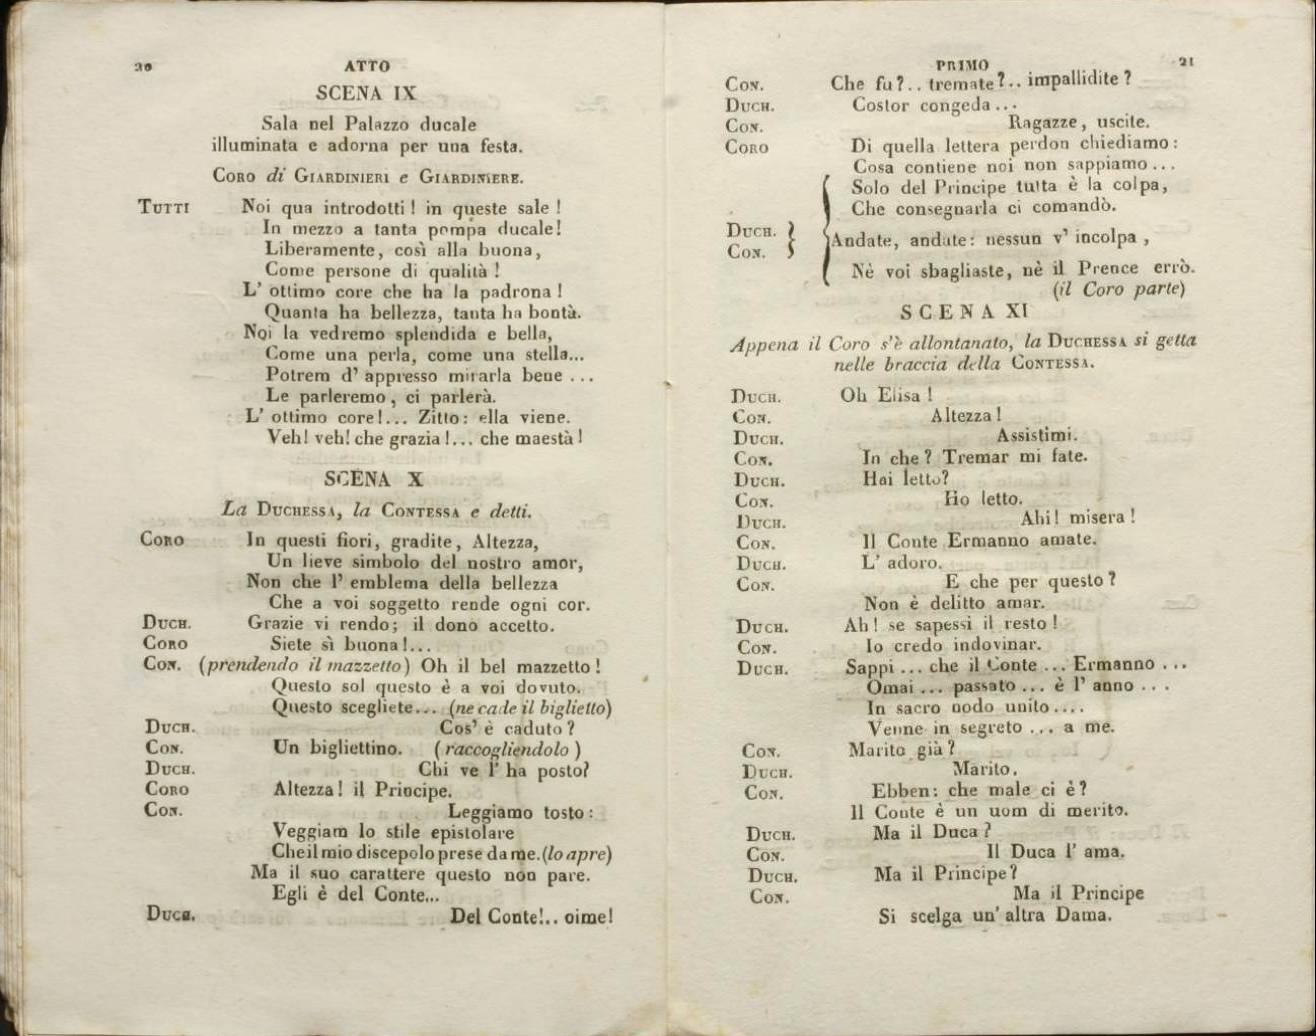 20 ATTO
SCENA IX
Sala nel Palazzo ducale
illuminata e adorna per una festa.
CORO di GIARDINIERI e GIARDINIERE.
TUTTI Noi qua introdotti! in queste sale!
In mezzo a tanta pompa ducale!
Liberamente, così alla buona,
Come persone di qualità!
L' ottimo core che ha la padrona!
Quanta ha bellezza, tanta ha bontà.
Noi la vedremo splendida e bella,
Come una perla, come una stella...
Potrem d' appresso mirarla bene ...
Le parleremo, ci parlerà.
L' ottimo core!... Zitto: ella viene.
Veh! veh! che grazia!... che maestà!
SCENA X
La DUCHESSA, la CONTESSA e detti.
CORO In questi fiori, gradite, Altezza,
Un lieve simbolo del nostro amor,
Non che l' emblema della bellezza
Che a voi soggetto rende ogni cor.
DUCH. Grazie vi rendo; il dono accetto.
CORO Siete sì buona!...
CON. (prendendo il mazzetto) Oh il bel mazzetto!
Questo sol questo è a voi dovuto.
Questo scegliete... (ne cade il biglietto)
DUCH. Cos' è caduto?
CON. Un bigliettino. (raccogliendolo)
DUCH. Chi ve l' ha posto?
CORO Altezza! il Principe.
CON. Leggiamo tosto:
Veggiam lo stile epistolare
Che il mio discepolo prese da me. (lo apre)
Ma il suo carattere questo non pare.
Egli è del Conte...
DUCH. Del Conte!.. oimè!
PRIMO 21
CON. Che fu?.. tremate?.. impallidite?
DUCH. Costor congeda...
CON. Ragazze, uscite.
CORO Di quella lettera perdon chiediamo:
Cosa contiene noi non sappiamo...
Solo del Principe tutta è la colpa,
Che consegnarla ci comandò.
DUCH. CON. Andate, andate: nessun v' incolpa,
Nè voi sbagliaste, nè il Prence errò.
(il Coro parte)
SCENA XI
Appena il Coro s'è allontanato, la DUCHESSA si getta
nelle braccia della CONTESSA.
DUCH. Oh Elisa!
CON. Altezza!
DUCH. Assistimi.
CON. In che? Tremar mi fate.
DUCH. Hai letto?
CON. Ho letto.
DUCH. Ahi! misera!
CON. Il Conte Ermanno amate.
DUCH. L' adoro.
CON. E che per questo?
Non è delitto amar.
DUCH. Ah! se sapessi il resto!
CON. Io credo indovinar.
DUCH. Sappi ... che il Conte ... Ermanno ...
Omai ... passato ... è l' anno ...
In sacro nodo unito....
Venne in segreto ... a me.
CON. Marito già?
DUCH. Marito.
CON. Ebben: che male ci è?
Il Conte è un uom di merito.
DUCH. Ma il Duca?
CON. Il Duca l' ama.
DUCH. Ma il Principe?
CON. Ma il Principe
Si scelga un' altra Dama.